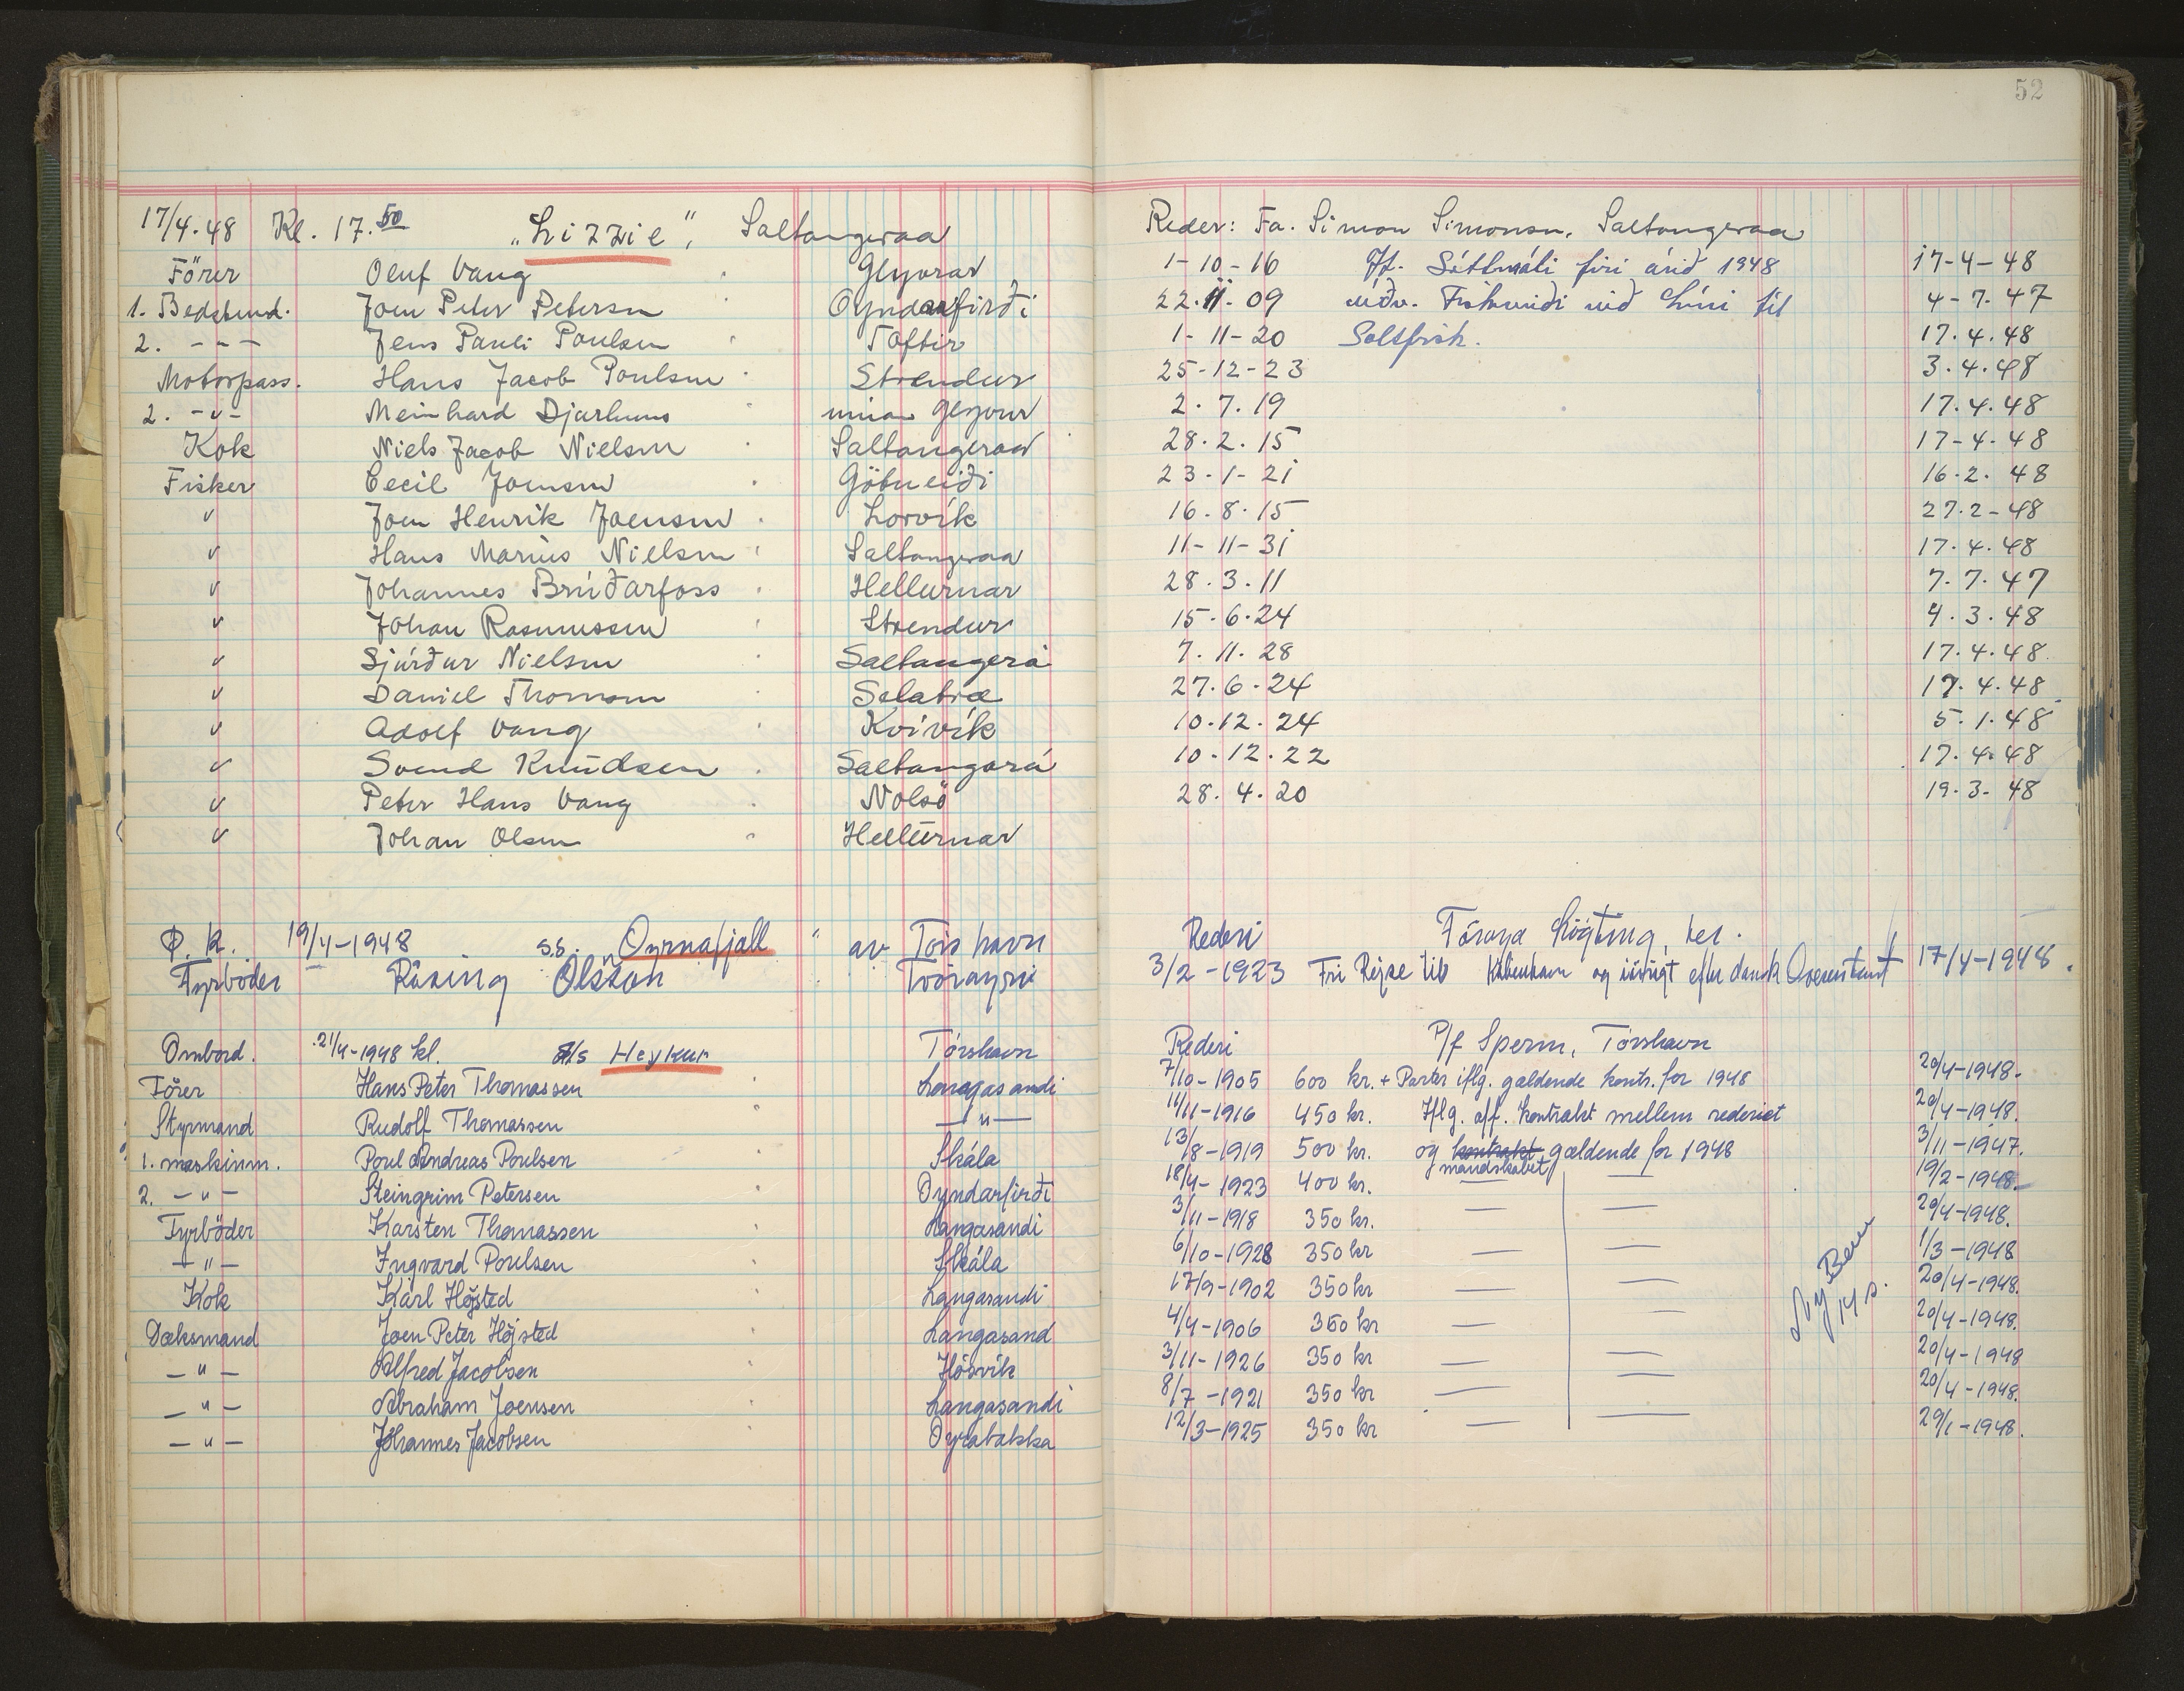 52
17/4.48 Kl. 17.50 „Lizzie", Saltangeraa Reder: Fa. Simon Simonsn, Saltangeraa
Förer Oluf Vang Glyvrar 1-10-16 Jf. Sáttmáli firi árið 1948 17-4-48
1. Bedstmd. Joen Peter Petersn Oyndarfirði 22.11.09 viðv. Fiskveiði við Línu til 4-7.47
2. - - - Jens Pauli Poulsen Toftir 1-11-20 Saltfisk. 17.4.48
Motorpass. Hans Jacob Poulsen Strendur 25-12-23 3.4.48
2. -"- Meinhard Djurhuus Glyvrar 2.7.19 17.4.48
Kok Niels Jacob Nielsen Saltangeraa 28.2.15 17-4-48
Fisker Cecil Joensen Götueiði 23-1-21 16.2.48
" Joen Henrik Joensen Lorvík 16.8.15 27.2-48
" Hans Marius Nielsen Saltangeraa 11-11-31 17.4.48
" Johannes Brúðarfoss Hellurnar 28.3.11 7.7.47
" Johan Rasmussen Strendur 15.6.24 4.3.48
" Sjúrður Nielsen Saltangerá 7.11.28 17.4.48
" Daniel Thomsen Selatræ 27.6.24 17.4.48
" Adolf Vang Kvívík 10.12.24 5.1.48
" Svend Knudsen Saltangará 10-12.22 17.4.48
" Peter Hans Vang Nolsö 28.4.20 19.3-48
" Johan Olsen Hellurnar
P. k. 19/4-1948 s.s. „Oyrnafjall" av Tórshavn Rederi Føroya Lögting, her.
Fyrböder Råsing Olsson Tvöroyri 3/2-1923 Fri Rejse til København og iövrigt efter dansk Overenskomst 17/4-1948.
Ombord. 21/4-1948 kl. S/s Heykur Tórshavn Rederi P/f Sperm, Tórshavn
Förer Hans Peter Thomassen Langasandi 7/10-1905 600 kr. + Parter iflg. gældende kontr. for 1948 20/4-1948.
Styrmand Rudolf Thomassen —"— 11/11-1916 450 kr. Iflg. aff. kontrakt mellem rederiet 20/4-1948.
1. maskinm. Poul Andreas Poulsen Skála 13/8-1919 500 kr. og kontrakt mandskabet gældende for 1948 3/11-1947.
2. -"- Steingrim Petersen Oyndarfirði 18/4-1923 400 kr. — — 19/2-1948.
Fyrböder Karsten Thomassen Langasandi 3/11-1918 350 kr. — — 20/4-1948.
-"- Ingvard Poulsen Skála 6/10-1928 350 kr — — 1/3-1948
Kok Karl Højsted Langasandi 17/9-1902 350 kr — — 20/4-1948.
Dæksmand Joen Peter Højsted Langasand 4/4-1906 350 kr — — 20/4-1948.
-"- Alfred Jacobsen Hósvík 3/11-1926 350 kr — — 20/4-1948
-"- Abraham Joensen Langasandi 8/7-1921 350 kr — — 20/4-1948.
-"- Jóhannes Jacobsen Oyrabakka 12/3-1925 350 kr — — 29/1-1948.